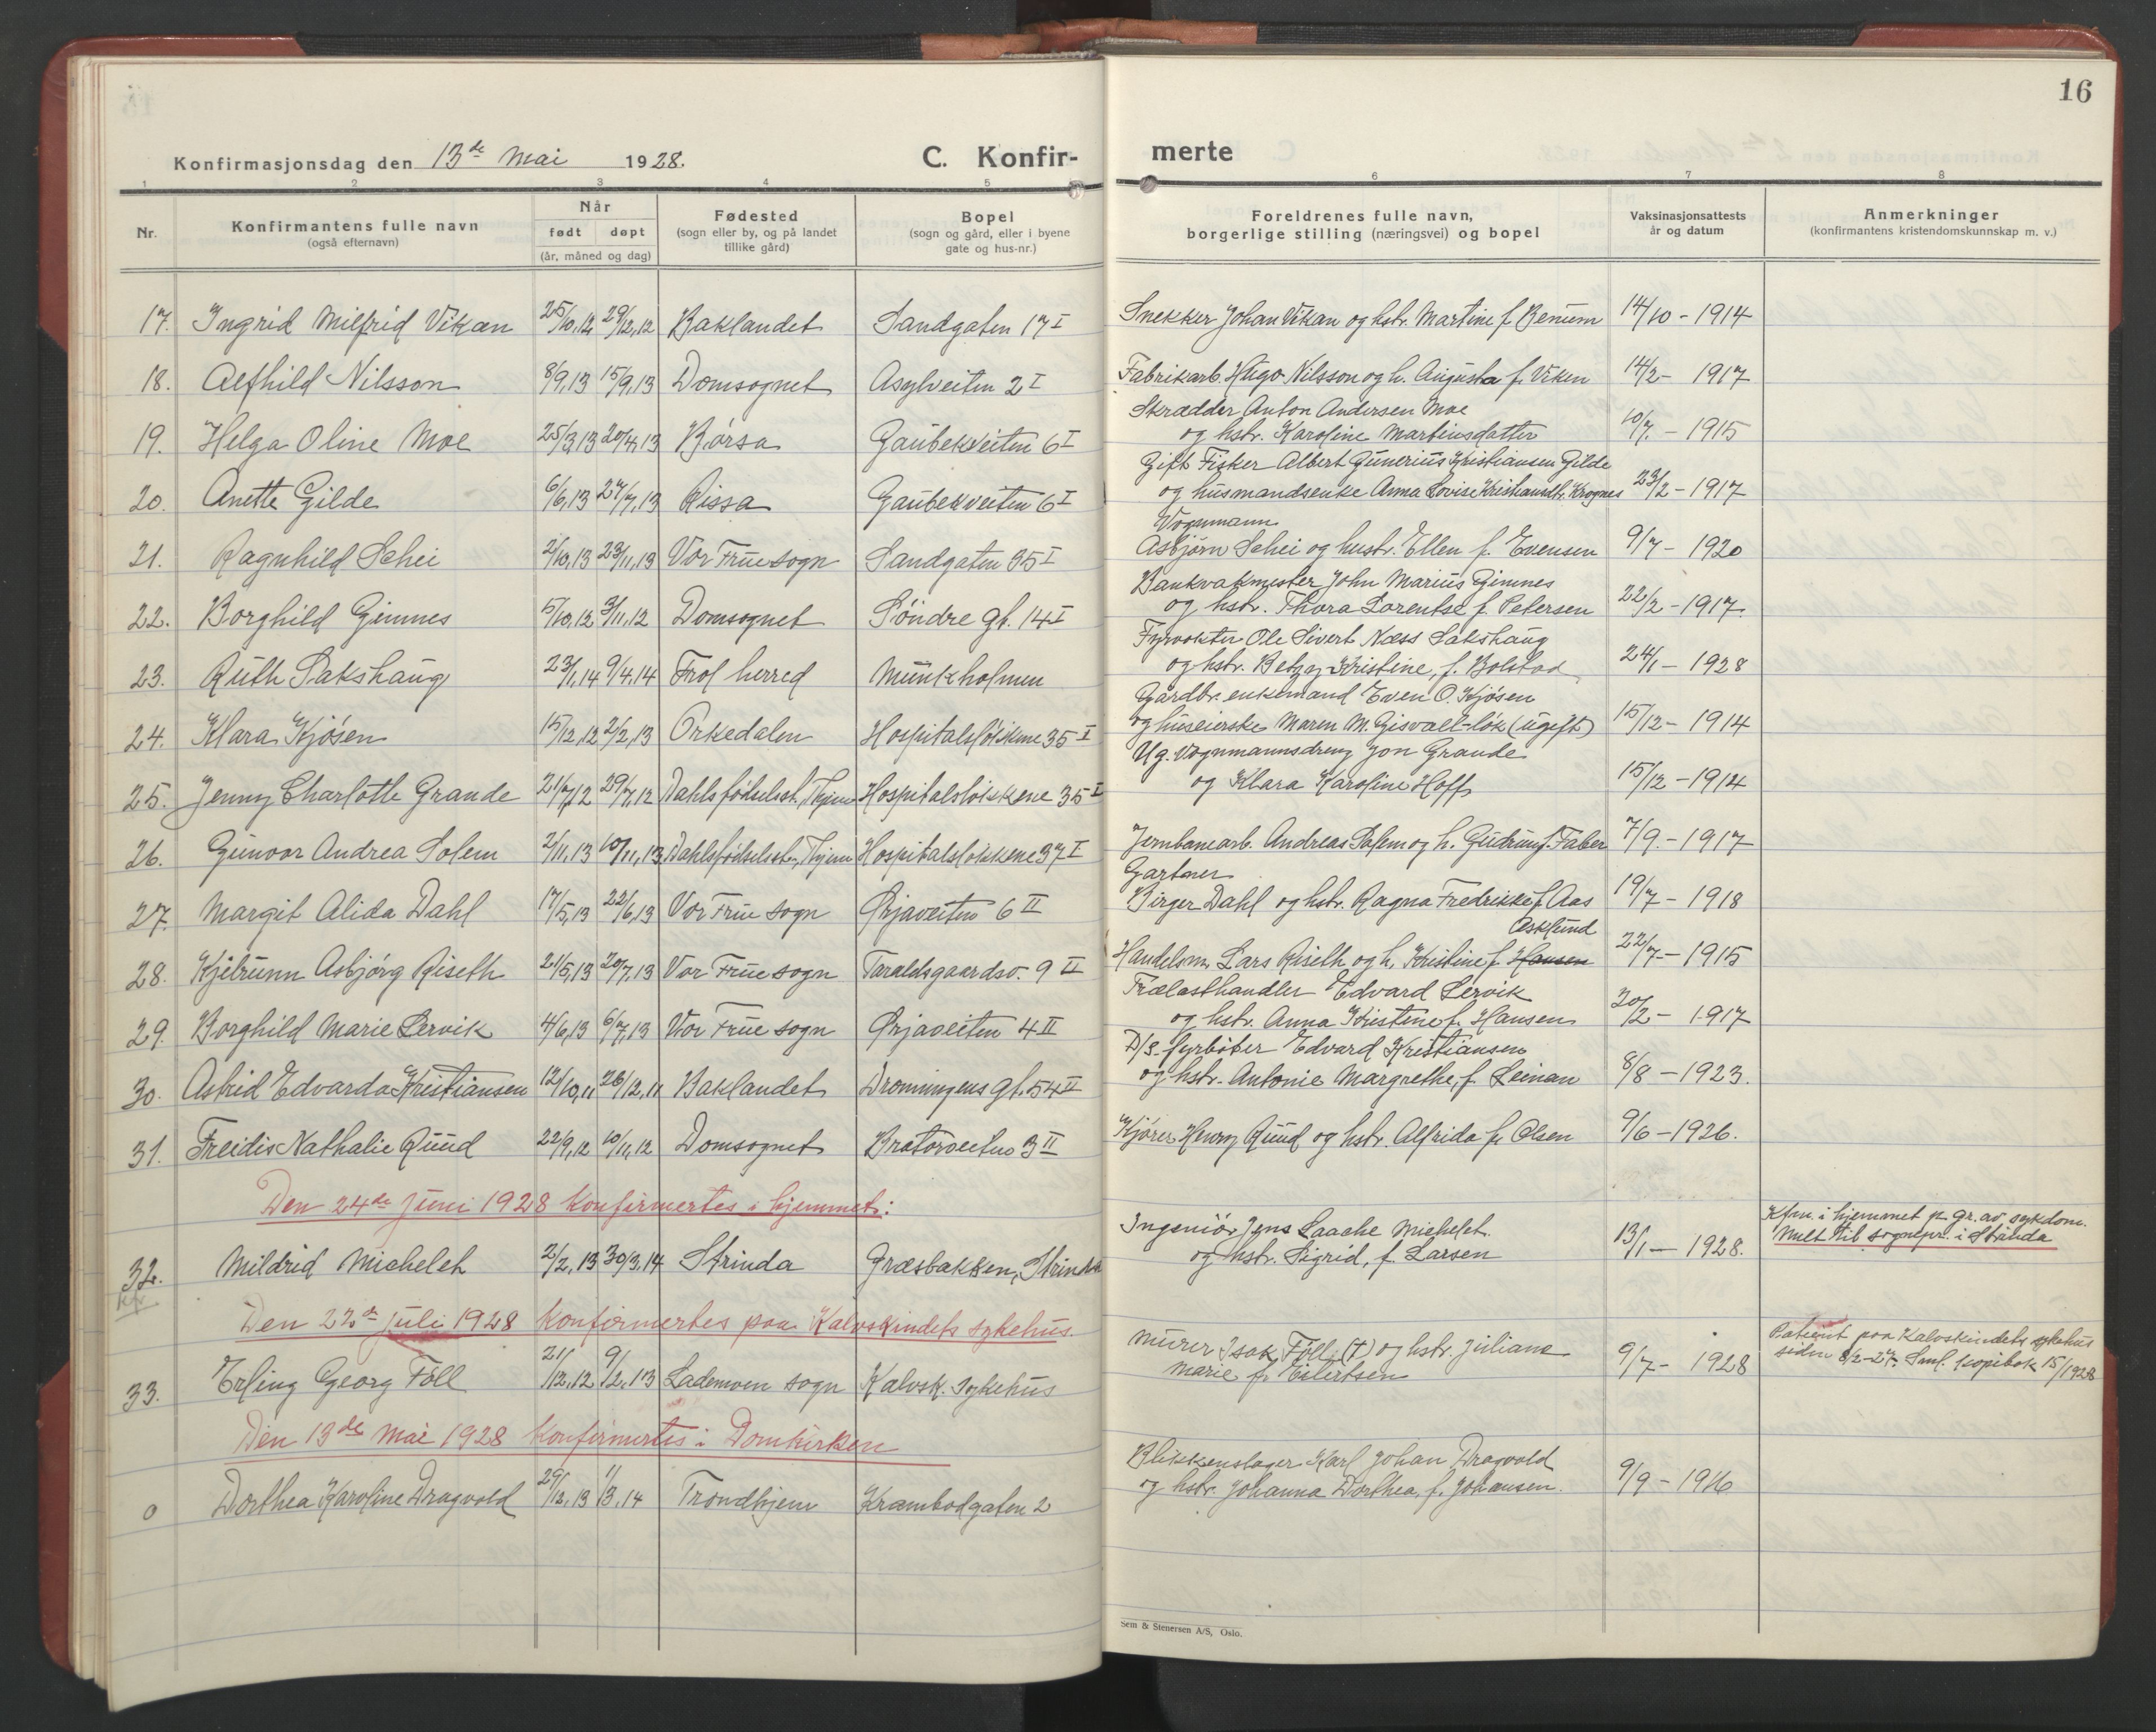 16
Konfirmasjonsdag den 13de Mai 1928. C. Konfir-
merte
1 2 3 4 5
6 7 8
Nr.
Konfirmantens fulle navn
(også efternavn)
Når
født døpt
(år, måned og dag)
Fødested
(sogn eller by, og på landet
tillike gård)
Bopel
(sogn og gård, eller i byene
gate og hus-nr.)
Foreldrenes fulle navn,
borgerlige stilling (næringsvei) og bopel
Vaksinasjonsattests
år og datum
Anmerkninger
(konfirmantens kristendomskunnskap m. v.)
17. Ingrid Milfrid Vikan 25/10,12 29/12,12 Baklandet Sandgaten 17 I
Snekker Johan Vikan og hstr. Martine f. Benum 14/10 - 1914
18. Alfhild Nilsson 8/9,13 15/9,13 Domsognet Asylveiten 2 I
Fabrikarb. Hugo Nilsson og h. Augusta f. Viken 14/2 - 1917
19. Helga Oline Moe 25/3,13 20/4,13 Børsa Gaubekveiten 6 I
Skrædder Anton Andersen Moe
og hstr. Karoline Martinsdatter 10/7. - 1915
20. Anette Gilde 6/6,13 27/7,13 Rissa Gaubekveiten 6 I
Gift Fisker Albert Gunerius Kristiansen Gilde
og husmandsenke Anna Lovise Kristiansdtr. Krognes 23/2 - 1917
21. Ragnhild Schei 2/10,13 23/11,13 Vor Frue sogn Sandgaten 35 I
Vognmann
Asbjørn Schei og hustr. Ellen f. Evensen 9/7 - 1920
22. Borghild Gimnes 5/10,12 3/11,12 Domsognet Søndre gt. 14 I
Bankvaktmester John Marius Gimnes
og hstr. Thora Lorentse f. Petersen 22/2 - 1917.
23. Ruth Sakshaug 23/1,14 9/4,14 Frol herred Munkholmen
Fyrvokter Ole Sivert Næss Sakshaug
og hstr. Betzy Kristine, f. Bolstad 24/1 - 1928
24. Klara Kjøsen 15/12,12 2/2,13 Orkedalen Hospitalsløkkene 35 I
Gårdbr. enkemand Even O. Kjøsen
og huseierske Maren M. Gisvall-løk (ugift) 15/12 - 1914
25. Jenny Charlotte Grande 21/7,12 29/7,12 Dahls fødselsst., Thjem Hospitalsløkkene 35 I
Ug. Vognmannsdreng Jon Grande
og Klara Karoline Hoff 15/12 - 1914
26. Gunvor Andrea Solem 2/11,13 10/11,13 Dahls fødselsst., Thjem Hospitalsløkkene 37 I
Jernbanearb. Andreas Solem og h. Gudrun f. Faber 7/9. - 1917
27. Margit Alida Dahl 17/5,13 22/6,13 Vor Frue sogn Ørjaveiten 6 II
Gartner
Birger Dahl og hstr. Ragna Fredrikke f. Aas 19/7 - 1918
28. Kjelrunn Asbjørg Riseth 21/5,13 20/7,13 Vor Frue sogn Taraldsgaardsv. 9 II
Asklund
Handelsm. Lars Riseth og h. Kristine f. Hansen 22/7. - 1915
29. Borghild Marie Lervik 4/6,13 6/7,13 Vor Frue sogn Ørjaveiten 4 II
Trælasthandler Edvard Lervik
og hstr. Anna Kristine f. Hansen 20/2 - 1917
30. Astrid Edvarda Kristiansen 12/10,11 26/12,11 Baklandet Dronningens gt. 54 II
D/S-fyrbøter Edvard Kristiansen
og hstr. Antonie Margrethe, f. Leinan 8/8 - 1923.
31. Freidis Nathalie Ruud 22/9,12 10/11,12 Domsognet Bratørveiten 3 II
Kjører Henry Ruud og hstr. Alfrida f. Olsen 9/6 - 1926.
Den 24de Juni 1928 Konfirmertes i hjemmet:
32. Mildrid Michelet 2/2,13 30/3,14 Strinda Græsbakken, Strinda
Ingeniør Jens Laache Michelet
og hstr. Sigrid, f. Larsen 13/1 - 1928.
Kfm. i hjemmet p. gr. av sykdom.
Melt til sognepr. i Strinda
Den 22de Juli 1928 Konfirmertes paa Kalvskindets sykehus.
33. Erling Georg Föll 21/12,12 9/2,13 Lademoen sogn Kalvsk. sykehus
Murer Isak Föll (†) og hstr. Juliane
Marie f. Eilertsen 9/7 - 1928
Patient paa Kalvskindets sykehus
siden 8/2-27. Sml. kopibok 15/1928
Den 13de Mai 1928 Konfirmertes i Domkirken
0 Dorthea Karoline Dragvold 29/12,13 1/3,14 Trondhjem Krambodgaten 2
Blikkenslager Karl Johan Dragvold
og hstr. Johanna Dorthea, f. Johansen. 9/9 - 1916
Sem & Stenersen A/S, Oslo.